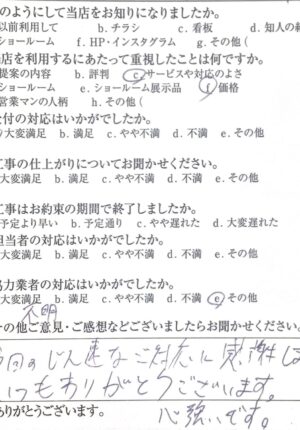 のようにして当店をお知りになりましたか。
以前利用して b. チラシ c. 看板 d. 知人の
ショールーム f. HP・インスタグラム g. その他（
店を利用するにあたって重視したことは何ですか。
提案の内容 b. 評判 c. サービスや対応のよさ
ショールーム e. ショールーム展示品 f. 価格
営業マンの人柄 h. その他（
付の対応はいかがでしたか。
大変満足 b. 満足 c. やや不満 d. 不満 e. その他
工事の仕上がりについてお聞かせください。
大変満足 b. 満足 c. やや不満 d. 不満 e. その他（
工事はお約束の期間で終了しましたか。
予定より早い b. 予定通り c. やや遅れた d. 大変遅れた
担当者の対応はいかがでしたか。
大変満足 b. 満足 c. やや不満 d. 不満 e. その他
協力業者の対応はいかがでしたか。
大変満足 b. 満足 c. やや不満 d. 不満 e. その他
不明
の他ご意見・ご感想などございましたらお聞かせください。
今回のじん速なご対応に感謝しま
いつもありがとうございます。
ありがとうございます。 心強いです。